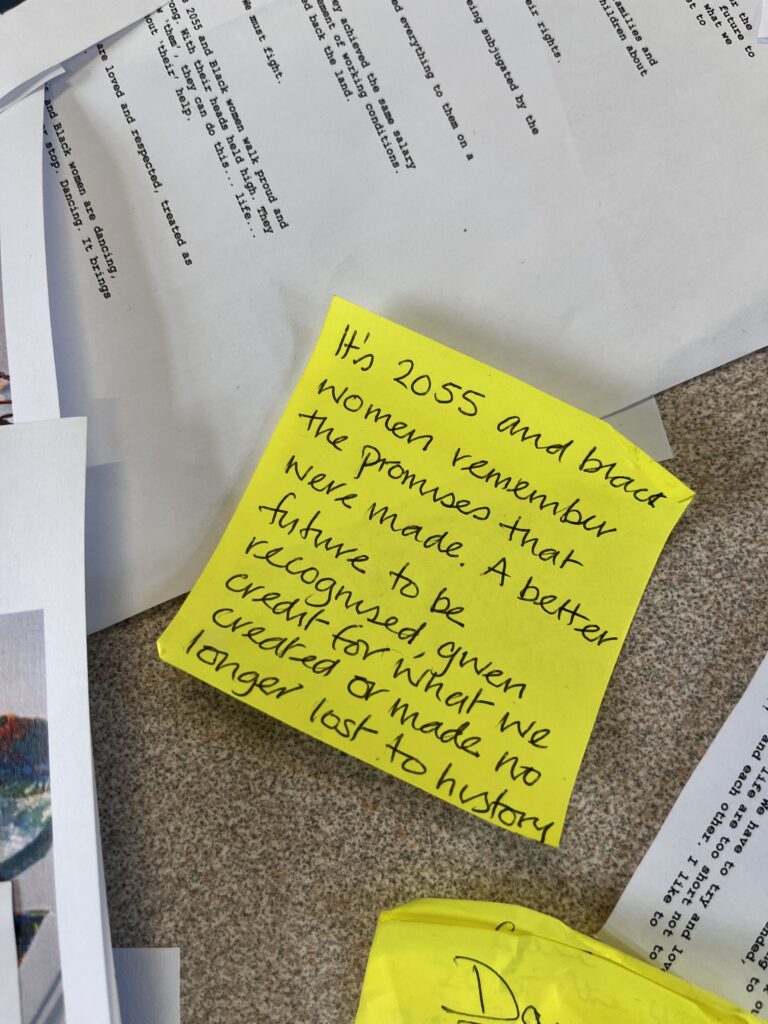 It's 2055 and black
women remember
the promises that
were made. A better
future to be
recognised, given
credit for what we
created or made no
longer lost to history
the
future to
what we
et to
families and
children about
their rights.
being subjugated by the
ed everything to them on a
ey achieved the same salary
ement of working conditions.
ed back the land.
We must fight.
2055 and Black women walk proud and
ong. With their heads held high. They
'them', they can do this... life...
out 'their' help.
are loved and respected, treated as
and Black women are dancing,
stop. Dancing. It brings
We have to try and lov
life are too short not to
and each other. I like to